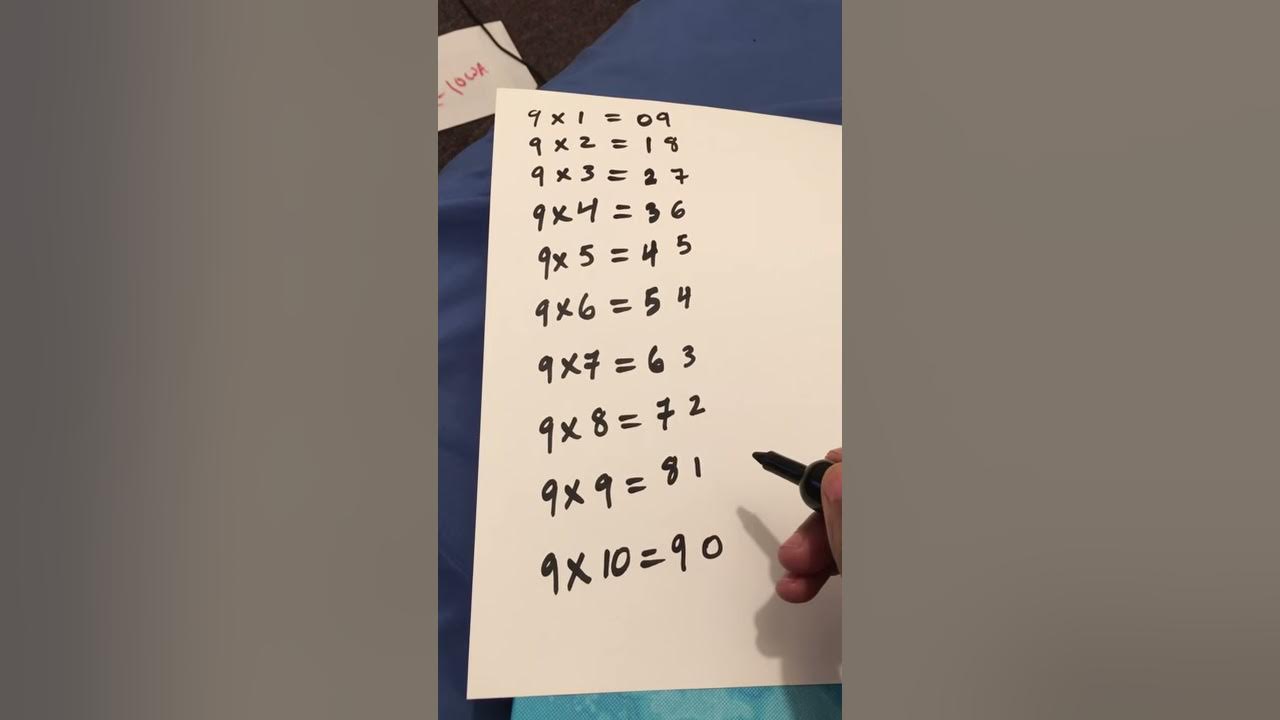 9 x 1 = 09
9 x 2 = 18
9 x 3 = 27
9 x 4 = 36
9 x 5 = 45
9 x 6 = 54
9 x 7 = 63
9 x 8 = 72
9 x 9 = 81
9 x 10 = 90